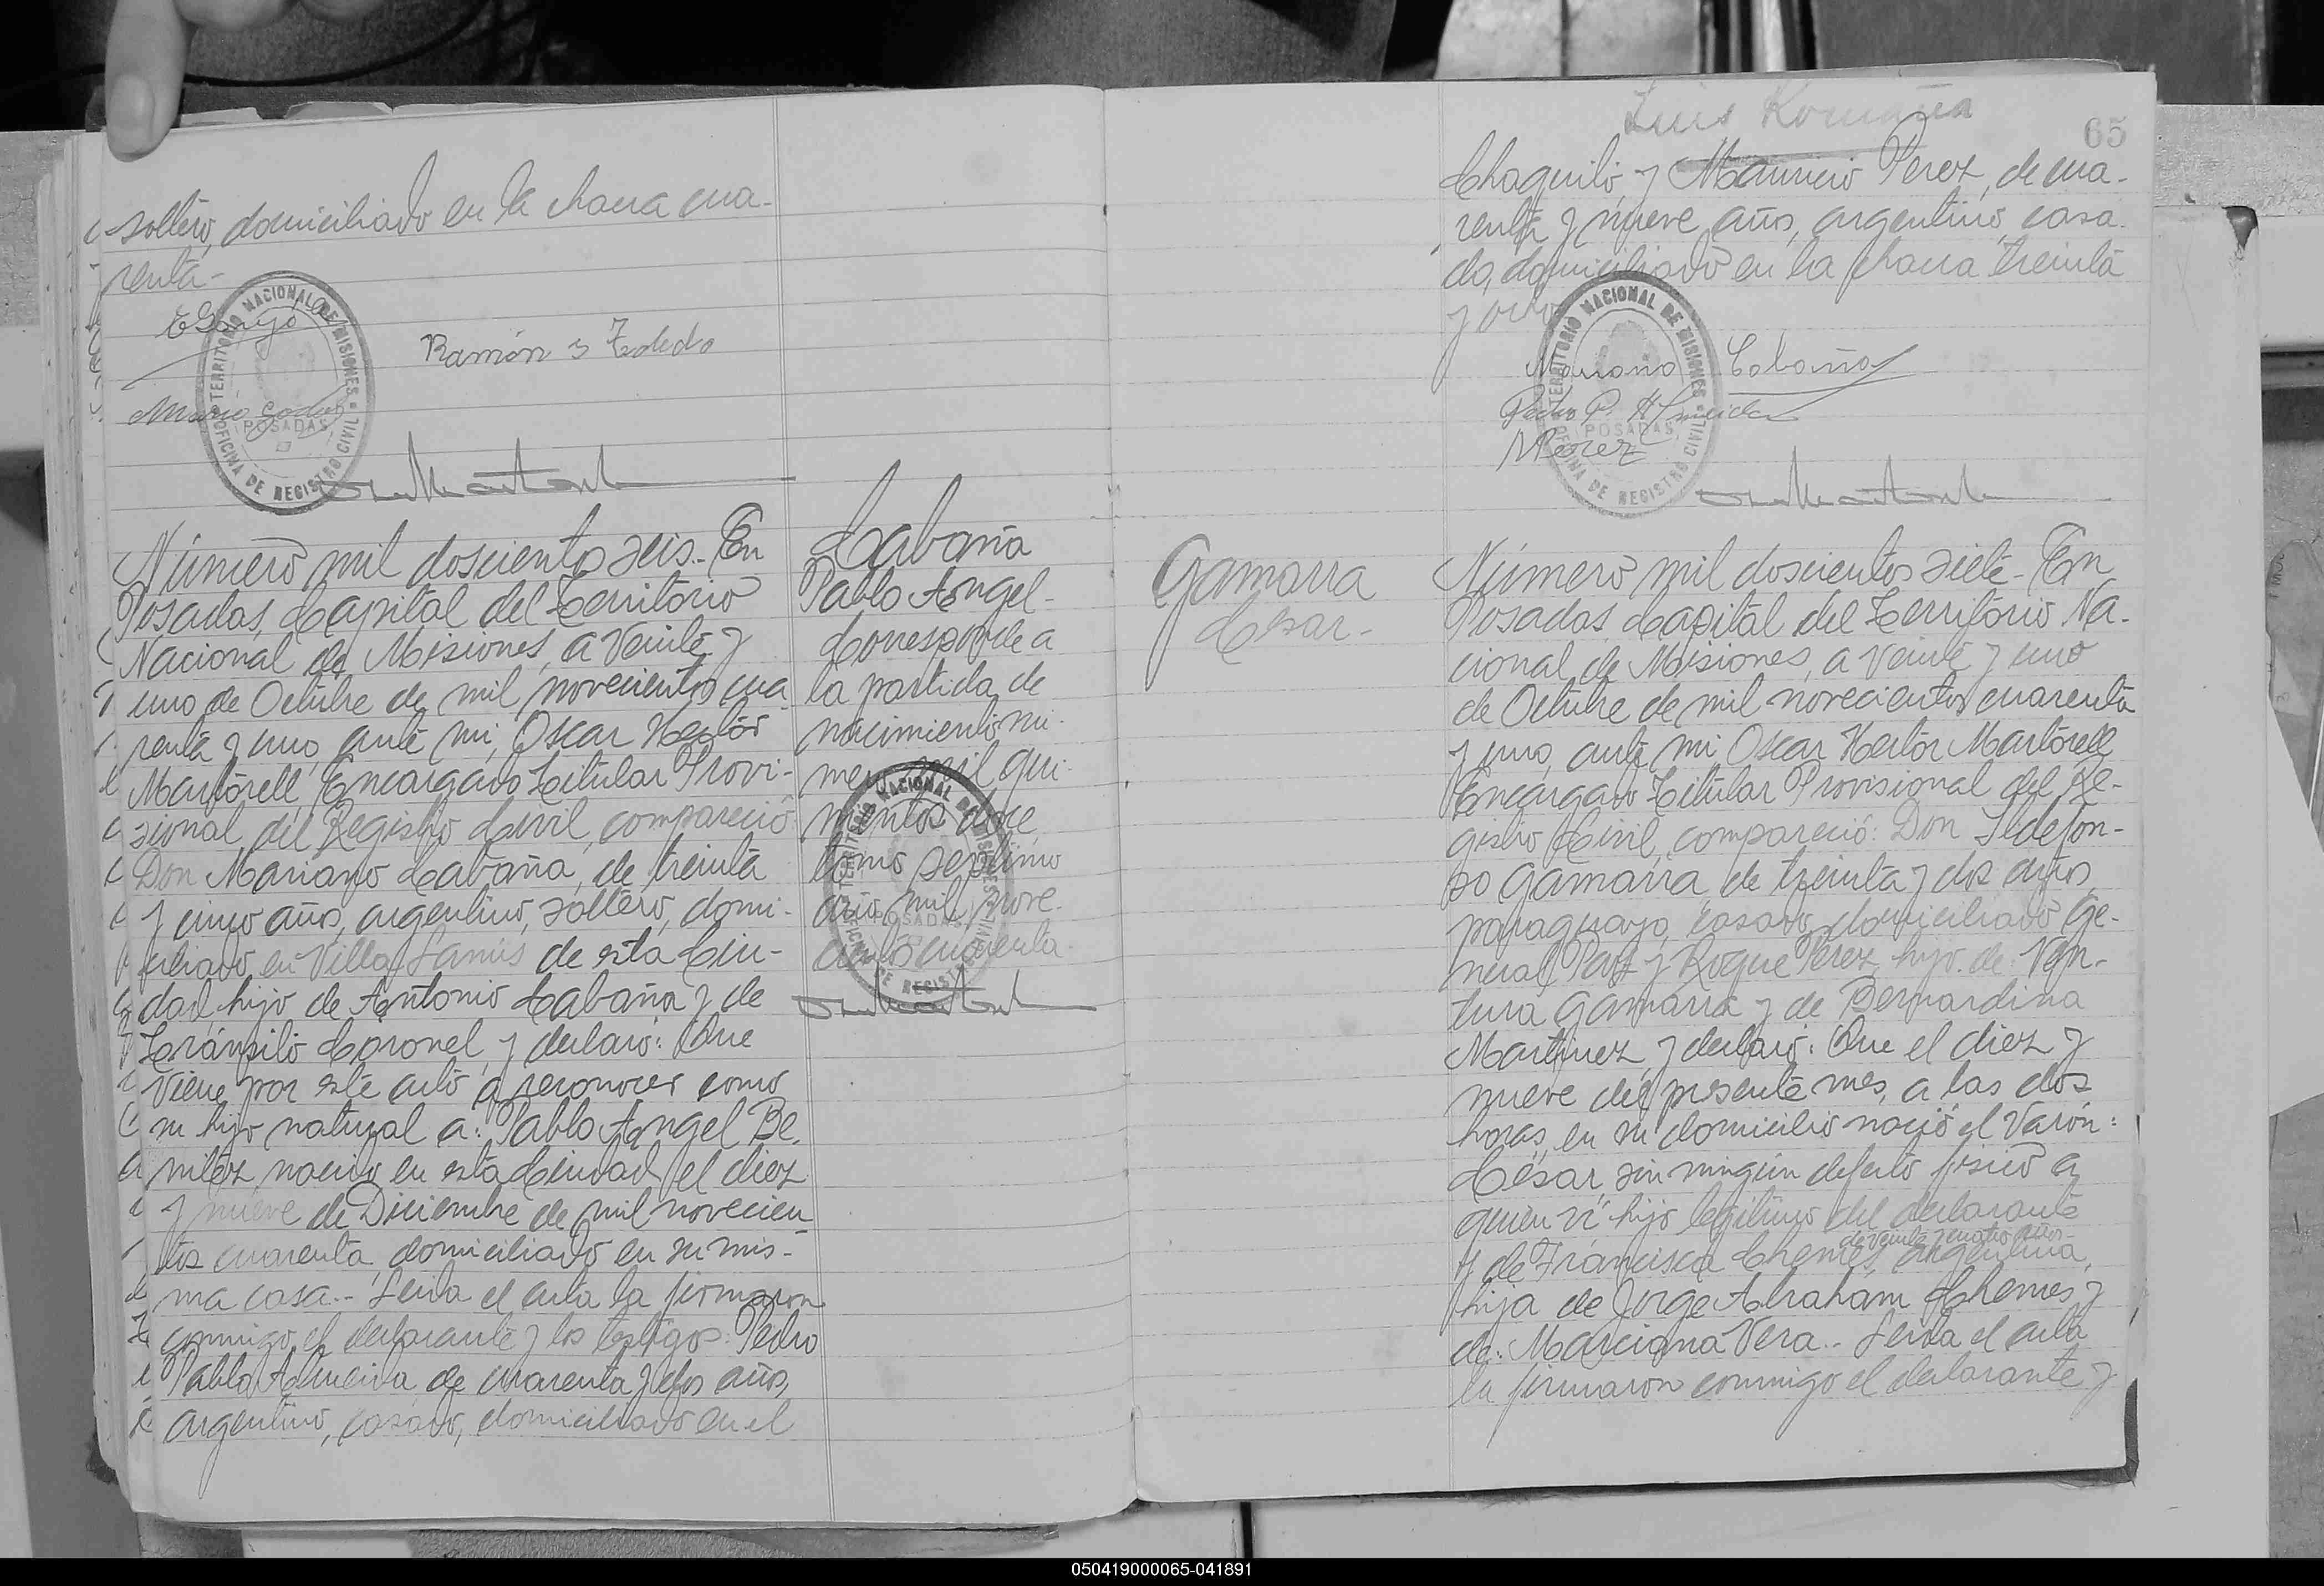 soltero, domiciliado en la chacra cua-
renta-
E Garujo
Ramón S Toledo
Mario Godoy
TERRITORIO NACIONAL DE MISIONES
OFICINA DE REGISTRO CIVIL
POSADAS
Número mil doscientos seis.- En
Posadas, Capital del Territorio
Nacional de Misiones, a veinte y
uno de Octubre de mil novecientos cua
renta y uno, ante mi, Oscar Hector
Martorell, Encargado Titular Provi-
sional del Registro Civil, compareció
Don Mariano Cabaña, de treinta
y cinco años, argentino, soltero, domi-
ciliado en Villa Lanús de esta Ciu-
dad, hijo de Antonio Cabaña y de
Tránsito Coronel, y declaró: Que
viene por este acto a reconocer como
su hijo natural a: Pablo Angel Be-
nitez, nacido en esta Ciudad el diez
y nueve de Diciembre de mil novecien
tos cuarenta, domiciliado en su mis-
ma casa.- Leida el acta la firmaron
conmigo el declarante y los testigos: Pedro
Pablo Almeida de cuarenta y dos años,
argentino, casado, domiciliado en el
Cabaña
Pablo Angel-
Corresponde a
la partida de
nacimiento nú-
mero mil qui-
nientos doce
tomo septimo
año mil nove-
cientos cuarenta-
TERRITORIO NACIONAL DE MISIONES
OFICINA DE REGISTRO CIVIL
POSADAS
Luis Romaña
65
Chaquito y Mauricio Perez, de cua-
renta y nueve años, argentino, casa-
do, domiciliado en la chacra treinta
y ocho
TERRITORIO NACIONAL DE MISIONES
OFICINA DE REGISTRO CIVIL
POSADAS
Mariano Cabaña
Pedro P. Almeida
M Perez
Gamarra
Cesar-
Número mil doscientos siete- En
Posadas, Capital del Territorio Na-
cional de Misiones, a veinte y uno
de Octubre de mil novecientos cuarenta
y uno, ante mi Oscar Hector Martorell
Encargado Titular Provisional del Re-
gistro Civil, compareció: Don Ildefon-
so Gamarra, de treinta y dos años,
paraguayo, casado, domiciliado Ge-
neral Paz y Roque Perez, hijo de Ven-
tura Gamarra y de Bernardina
Martinez, y declaró: Que el diez y
nueve del presente mes, a las dos
horas, en su domicilio nació el varón:
César, sin ningún defecto físico a
quien ví hijo legítimo del declarante
de veinte y cuatro años-
y de Francisca Chemes, argentina,
hija de Jorge Abraham Chemes y
de: Marciana Vera.- Leida el acta
la firmaron conmigo el declarante y
050419000065-041891